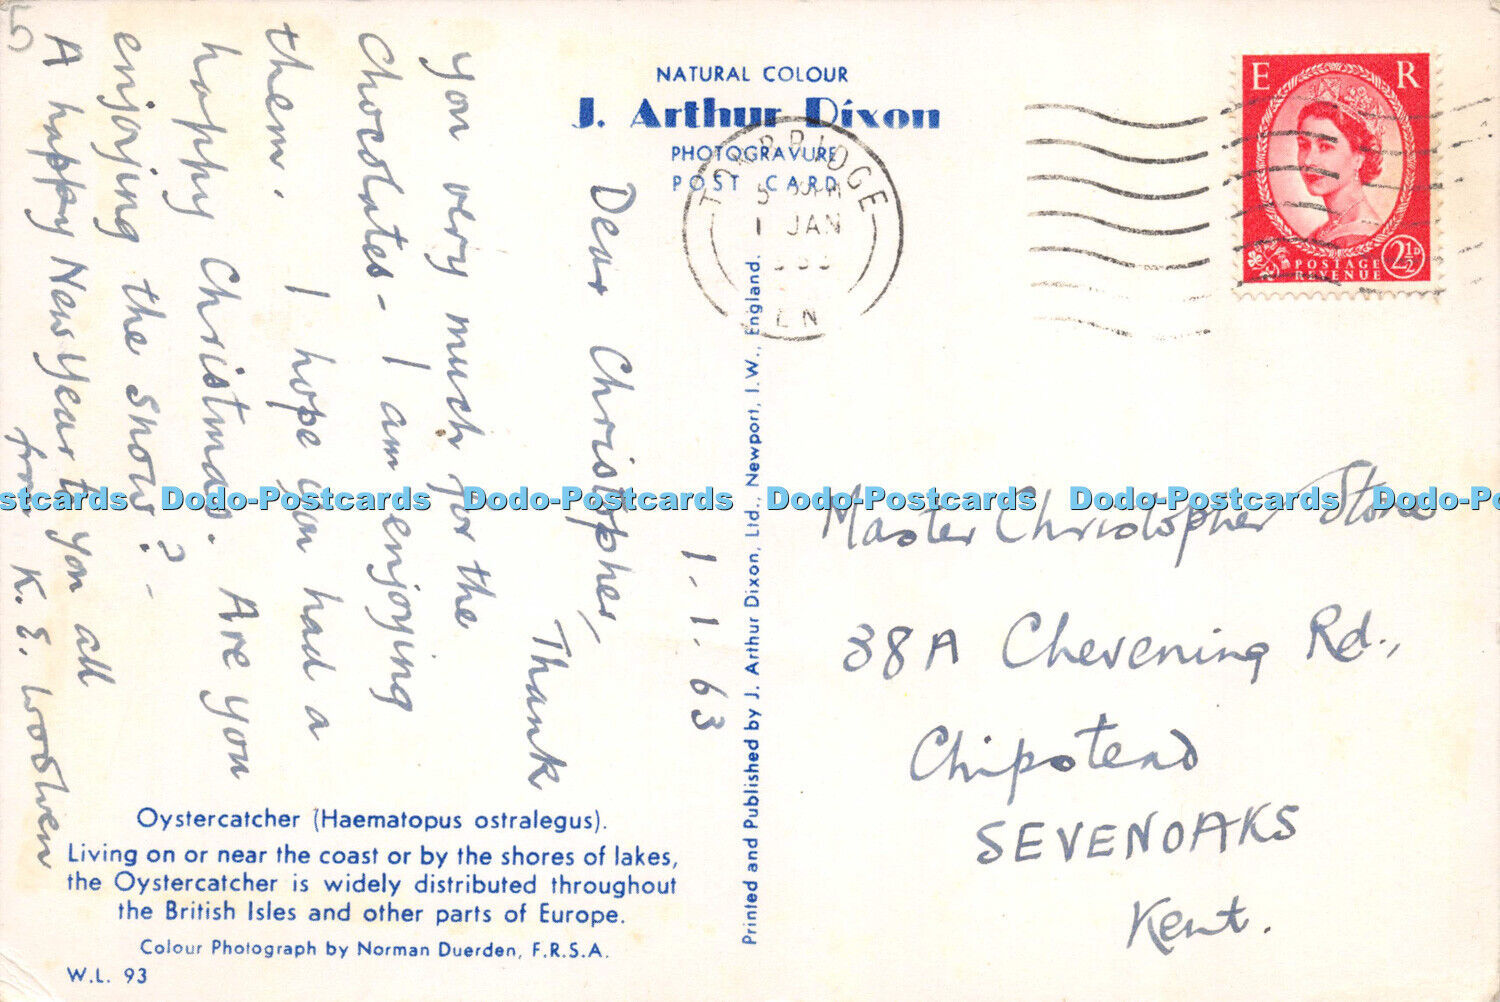 5
NATURAL COLOUR
J. Arthur Dixon
PHOTOGRAVURE
POST CARD
1-1-63
Dear Christopher,
Thank
you very much for the
chocolates - I am enjoying
them. I hope you had a
happy Christmas. Are you
enjoying the snow? -
A happy New Year to you all
from K. E.
Oystercatcher (Haematopus ostralegus).
Living on or near the coast or by the shores of lakes,
the Oystercatcher is widely distributed throughout
the British Isles and other parts of Europe.
Colour Photograph by Norman Duerden, F.R.S.A.
W.L. 93
Printed and Published by J. Arthur Dixon, Ltd., Newport, I.W., England.
TONBRIDGE
1 JAN
E R
POSTAGE
REVENUE
2½D
Master Christopher Stone
38A Chevening Rd.,
Chipstead
SEVENOAKS
Kent.
Postcards Dodo-Postcards Dodo-Postcards Dodo-Postcards Dodo-Postcards Dodo-Pos